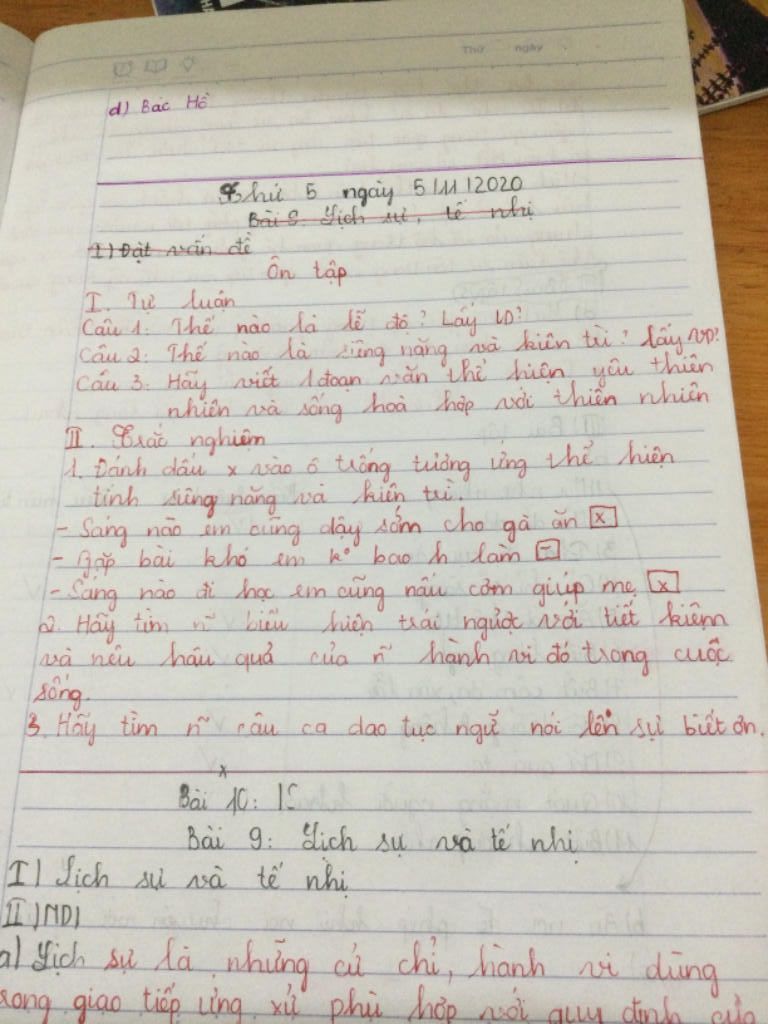 Thứ ngày
d) Bác Hồ
Thứ 5 ngày 5/11/2020
Bài 9: Lịch sự, tế nhị
I) Đặt vấn đề
Ôn tập
I. Tự luận
Câu 1: Thế nào là lễ độ? Lấy VD?
Câu 2: Thế nào là siêng năng và kiên trì? Lấy VD?
Câu 3: Hãy viết 1 đoạn văn thể hiện yêu thiên
nhiên và sống hoà hợp với thiên nhiên
II. Trắc nghiệm
1. Đánh dấu x vào ô trống tương ứng thể hiện
tính siêng năng và kiên trì.
- Sáng nào em cũng dậy sớm cho gà ăn x
- Gặp bài khó em ko bao h làm -
- Sáng nào đi học em cũng nấu cơm giúp mẹ x
2. Hãy tìm n~ biểu hiện trái ngược với tiết kiệm
và nêu hậu quả của n~ hành vi đó trong cuộc
sống.
3. Hãy tìm n~ câu ca dao tục ngữ nói lên sự biết ơn.
x
Bài 10:
Bài 9: Lịch sự và tế nhị
I) Lịch sự và tế nhị
II) ND
a) Lịch sự là những cử chỉ, hành vi dùng
trong giao tiếp ứng xử phù hợp với quy định của